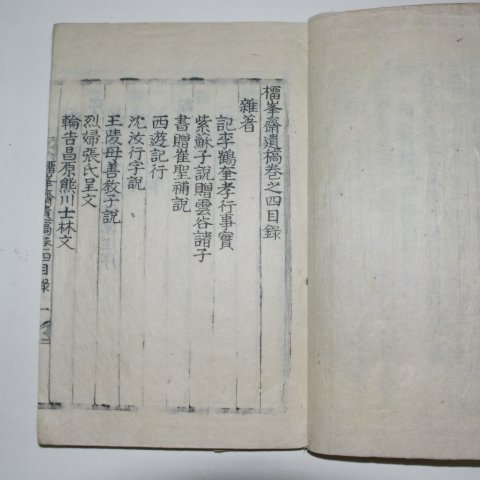 櫺峯齋遺稿卷之四目錄
雜著
記李鶴奎孝行事實
紫蘇子說贈雲谷諸子
書贈崔聖補說
西遊記行
沈汝行字說
王陵母善敎子說
烈婦張氏呈文
輪告昌原熊川士林文
櫺峯齋遺稿卷四目錄 一